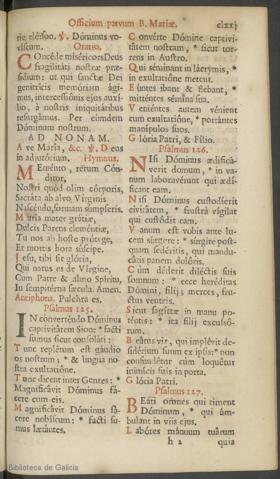 Officium parvum B. Mariæ. clxxj
rie eléison. ℣. Dóminus vobíscum.
Oratio.
COncéde miséricors Deus
fragilitáti nostræ præsídium:
ut qui sanctæ Dei
genitrícis memóriam ágimus,
intercessiónis ejus auxílio,
à nostris iniquitátibus
resurgámus. Per eúmdem
Dóminum nostrum.
AD NONAM.
A ve María, &c. ℣. Deus
in adjutórium. Hymnus.
MEménto, rerum Cónditor,
Nostri quòd olim córporis,
Sacráta ab alvo Vírginis
Nascéndo, formam súmpseris.
María mater grátiæ,
Dulcis Parens cleméntiæ,
Tu nos ab hoste prótege,
Et mortis hora súscipe.
Jesu, tibi sit glória,
Qui natus es de Vírgine,
Cum Patre & almo Spíritu,
In sempitérna sæcula. Amen.
Antiphona. Pulchra es.
Psalmus 125.
IN converténdo Dóminus
captivitátem Sion: * facti
sumus sicut consoláti:
Tunc replétum est gáudio
os nostrum: * & lingua nostra
exultatióne.
Tunc dicent inter Gentes: *
Magnificávit Dóminus fácere
cum eis.
Magnificávit Dóminus fácere
nobíscum: * facti sumus
lætántes.
Convérte Dómine captivitátem
nostram, * sicut torrens
in Austro.
Qui séminant in lácrymis, *
in exultatióne metent.
Eúntes ibant & flebant, *
mitténtes sémina sua.
Veniéntes autem vénient
cum exultatióne, * portántes
manípulos suos.
Glória Patri, & Fílio.
Psalmus 126.
NIsi Dóminus ædificáverit
domum, * in vanum
laboravérunt qui ædíficant
eam.
Nisi Dóminus custodíerit
civitátem, * frustrà vígilat
qui custódit eam.
Vanum est vobis ante lucem
súrgere: * súrgite postquam
sedéritis, qui manducátis
panem dolóris.
Cùm déderit diléctis suis
somnum: * ecce hæréditas
Dómini, fílii; merces, fructus
ventris.
Sicut sagíttæ in manu poténtis:
* ita fílii excussórum.
Beátus vir, qui implévit desidérium
suum ex ipsis: * non
confundétur cùm loquétur
inimícis suis in porta.
Glória Patri.
Psalmus 127.
BEáti omnes qui timent
Dóminum, * qui ámbulant
in viis ejus.
Labóres mánuum tuárum
h 2 quia
Biblioteca de Galicia